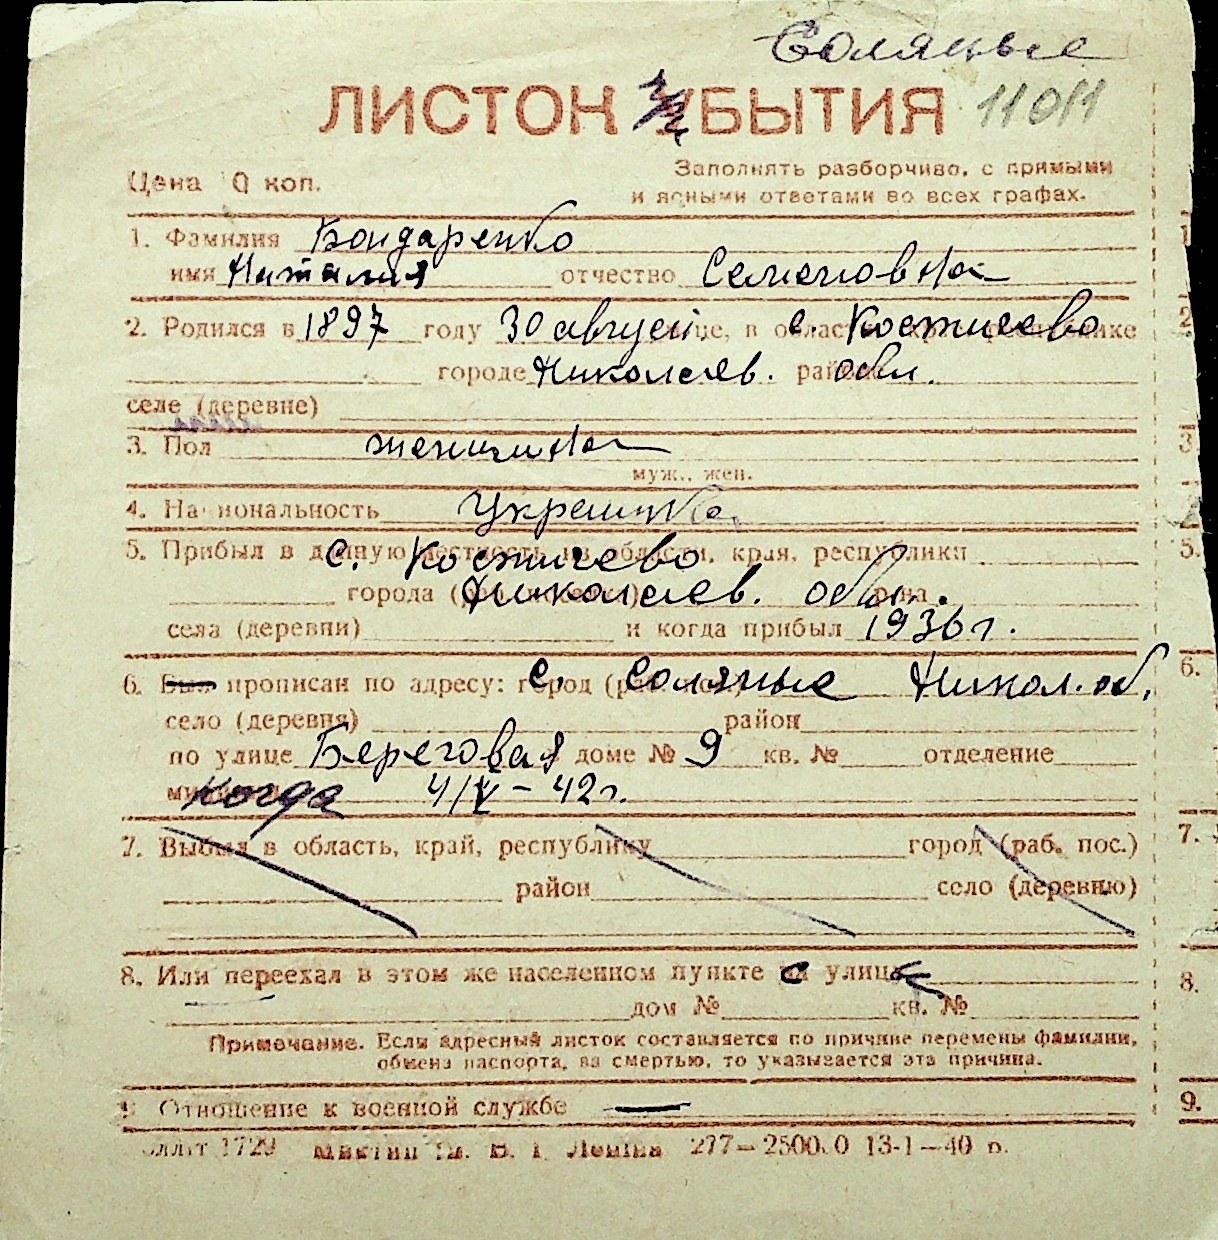 Соляные
ЛИСТОК УБЫТИЯ 11011
Цена 0 коп.
Заполнять разборчиво, с прямыми
и ясными ответами во всех графах.
1. Фамилия Бондаренко
имя Наталия отчество Семеновна
2. Родился в 1897 году 30 август с. Костичево
городе Николаев. обл.
селе (деревне)
3. Пол женщина
муж., жен.
4. Национальность Украинка
5. Прибыл в данную местность из области, края, республики с. Костичево
города Николаев. обл.
села (деревни) и когда прибыл 1936 г.
6. Был прописан по адресу: город с. Соляные Никол. об.
село (деревня) район
по улице Береговая доме № 9 кв. № отделение
когда 4/V – 42 г.
7. Выбыл в область, край, республику город (раб. пос.)
район село (деревню)
8. Или переехал в этом же населенном пункте с улицы
дом № кв. №
Примечание. Если адресный листок составляется по причине перемены фамилии,
обмена паспорта, за смертью, то указывается эта причина.
9 Отношение к военной службе —
1729 В. Леніна 277—2500.0 13-1—40 р.
1
2
3.
5.
6.
7.
8.
9.